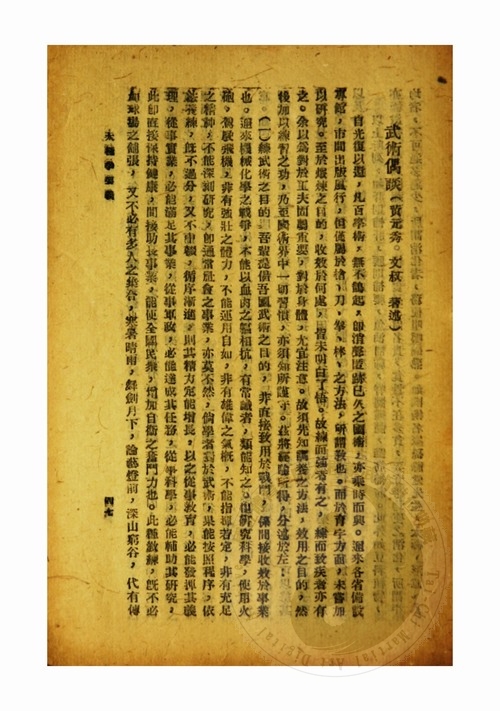 武術偶談（黃元秀。文叔 著述）
自光復以還，凡百學術，無不鵲起，卽消聲匿跡已久之國術，亦乘時而興。邇來各省備設
專館，市間出版風行，但僅屬於槍，刀，拳，棒，之方法，所謂敎也。而於育字方面，未嘗加
以硏究。至於煅煉之目的，收效於何處，皆未明白了悟。故練而強者有之，練而致疾者亦有
之。余以爲對於工夫固屬重要，對於身體，尤宜注意。故須先知調養之方法，效用之目的，然
後加以練習之功，乃至國術界中一切習慣，亦須知所遵守。茲將經驗所得，分述於左：
（一）練武術之目的。吾輩提倡吾國武術之目的，非直接致用於戰鬥，係間接收效於事業
也。邇來機械化學之戰爭，本能以血肉之軀相抗，有常識者，類能知之。但硏究科學，使用火
砲，駕駛飛機，非有強壯之體力，不能運用自如，非有雄偉之氣概，不能指揮若定，非有充足
之精神，不能深刻硏究，卽通常飲食之事業，亦莫不然，倘學者對於武術，果能按照程序，依
法敎練，旣不過分，又不中輟，循序漸進，則其精力定能增長，以之從事敎育，必能發揮其義
理，從事實業，必能滿足其事業，從事軍政，必能達成其任務，從事科學，必能輔助其硏究，
此卽直接保持健康，間接助長事業，能使全國民衆，增加自衛之奮鬥力也。此種敎練，旣不必
如球場之鋪張，又不必有多人之集合，寒暑晴雨，舞劍月下，論藝燈前，深山窮谷，代有傳
太極拳要義
四七